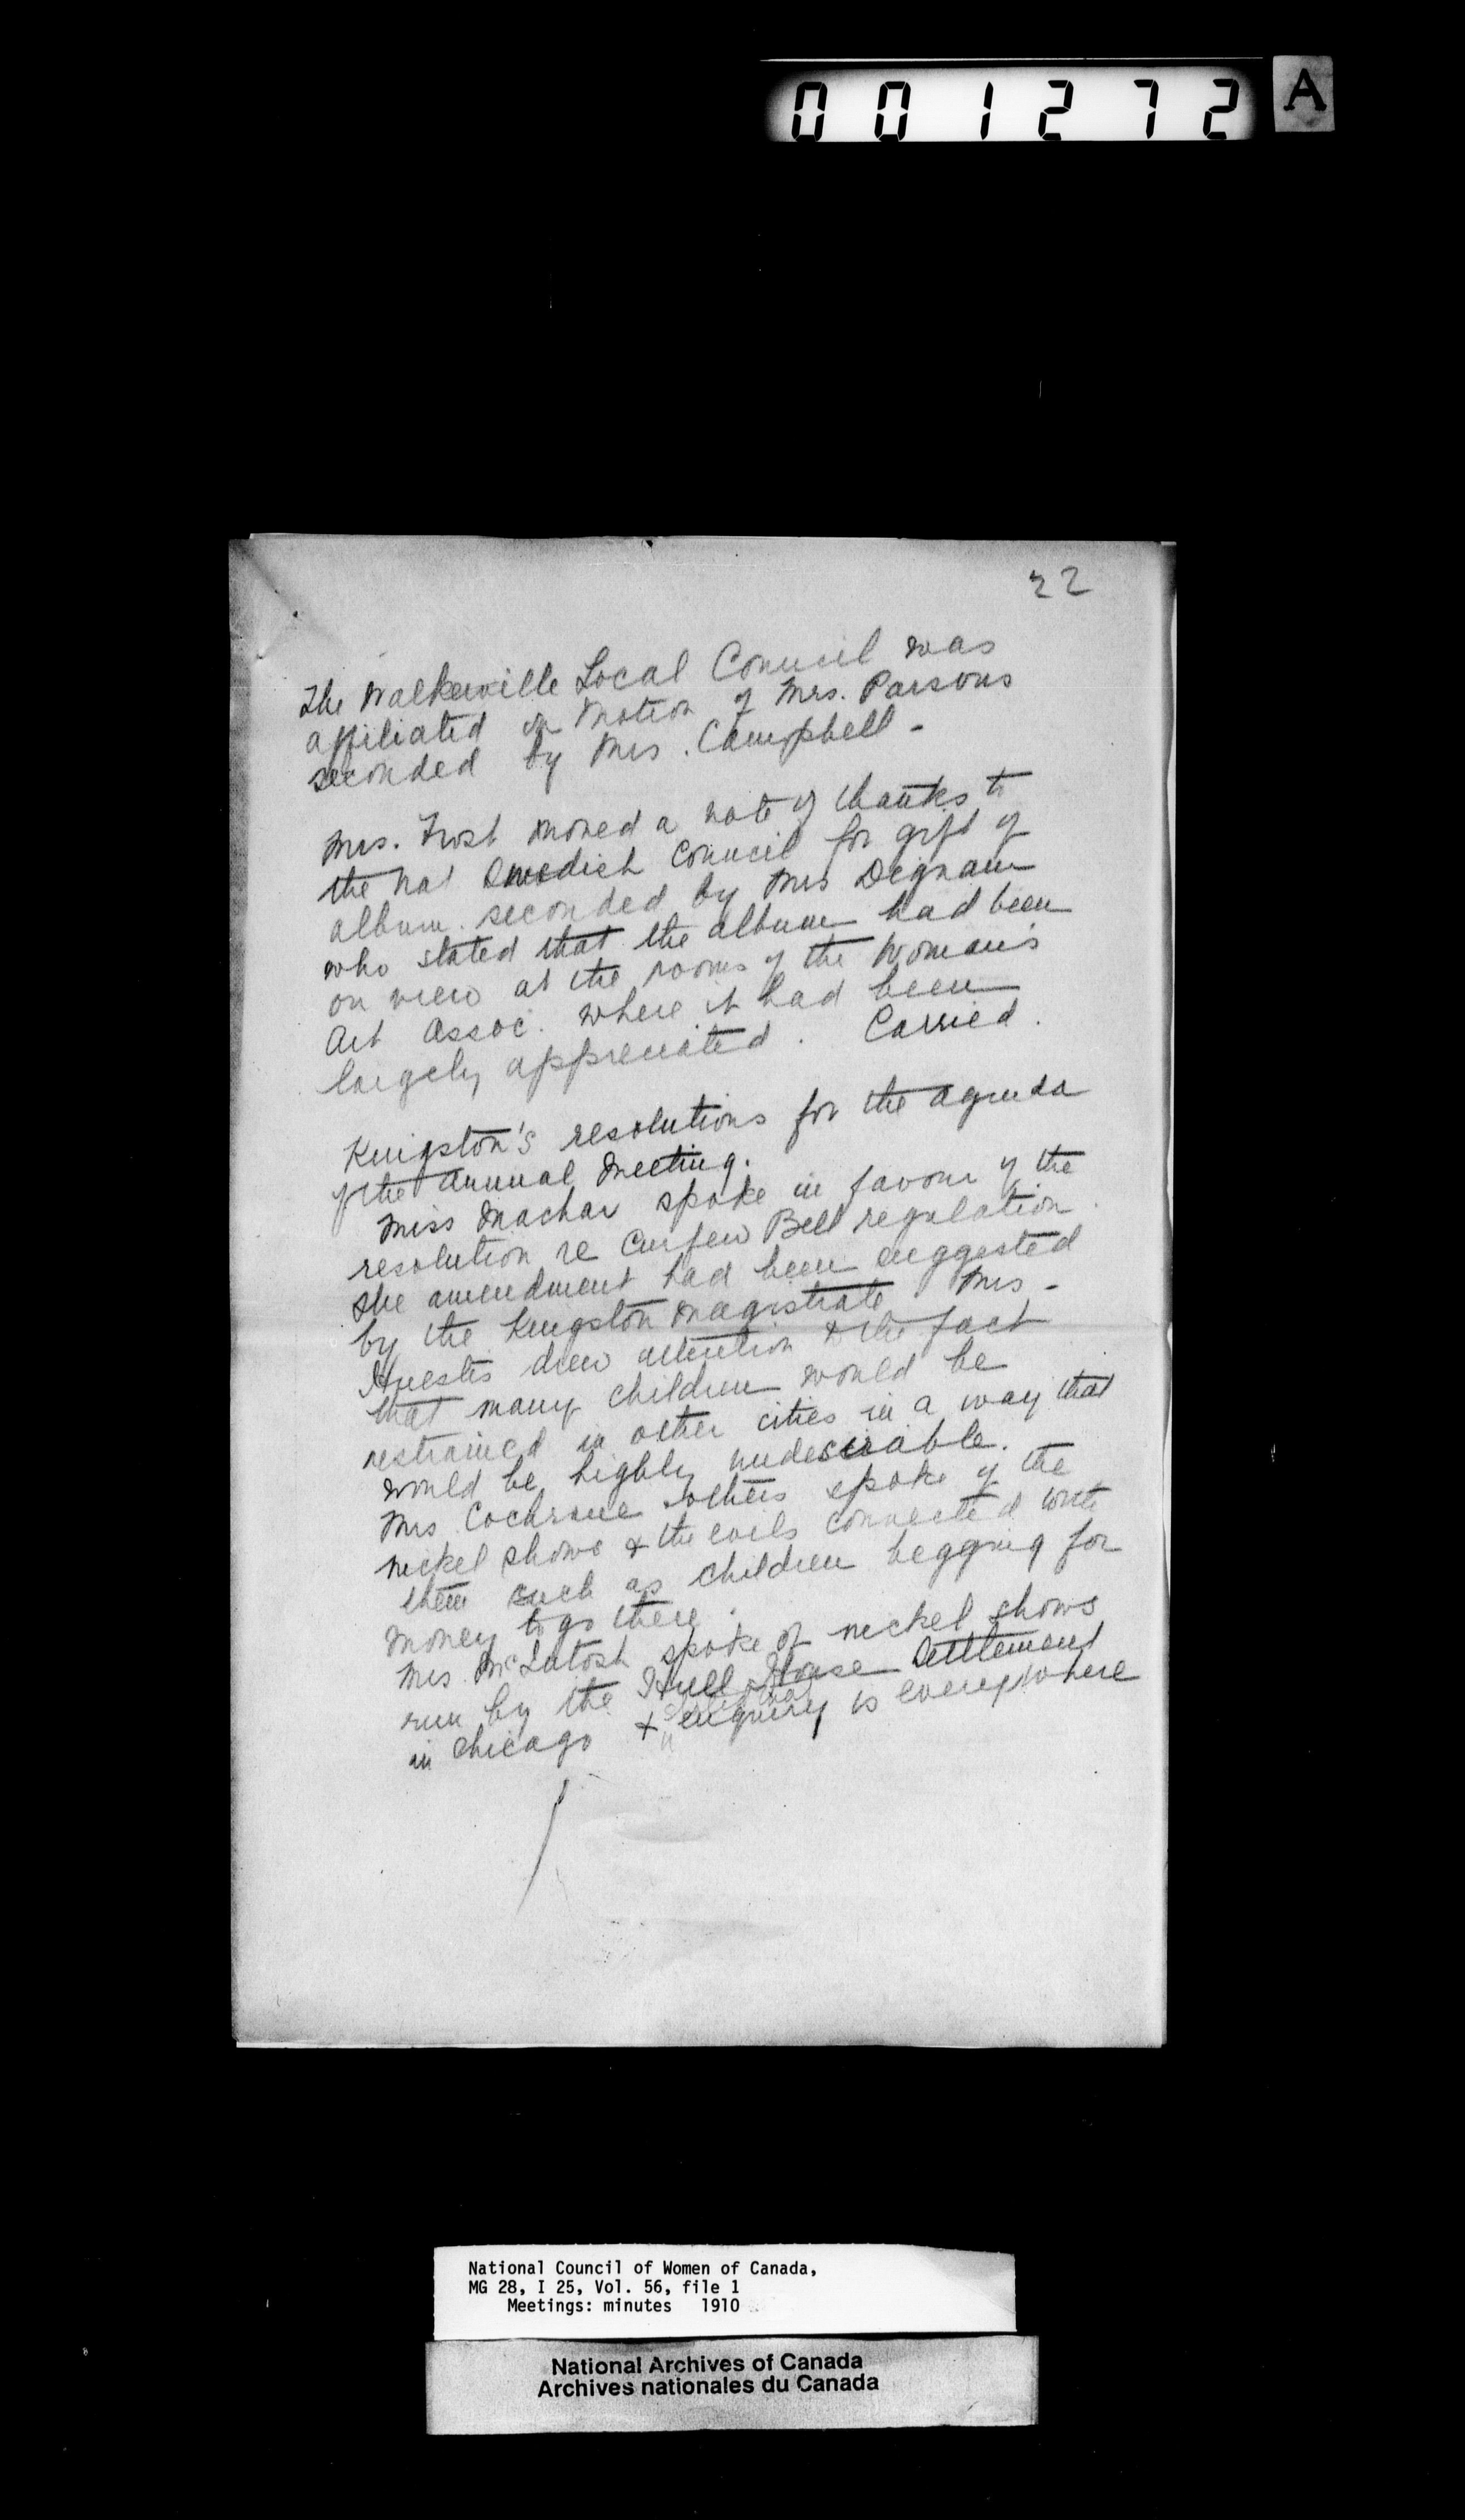 001272 A
22
The Walkerville Local Council was
affiliated on motion of Mrs. Parsons
seconded by Mrs. Campbell -
Mrs. Frost moved a vote of thanks to
the Nat Swedish Council for gift of
album. seconded by Mrs Dignam
who stated that the album had been
on view at the rooms of the Woman's
Art Assoc. where it had been
largely appreciated. Carried.
Kingston's resolutions for the agenda
of the Annual Meeting.
Miss Machar spoke in favour of the
resolution re Curfew Bell regulation.
The amendment had been suggested
by the Kingston Magistrate. Mrs -
Huestis drew attention to the fact
that many children would be
restrained in other cities in a way that
would be highly undesirable.
Mrs. Cochrane & others spoke of the
nickel shows & the evils connected with
them such as children begging for
money to go there.
Mrs. McIntosh spoke of nickel shows
run by the Hull House Settlement
in Chicago & enquiry is everywhere
National Council of Women of Canada,
MG 28, I 25, Vol. 56, file 1
Meetings: minutes 1910
National Archives of Canada
Archives nationales du Canada